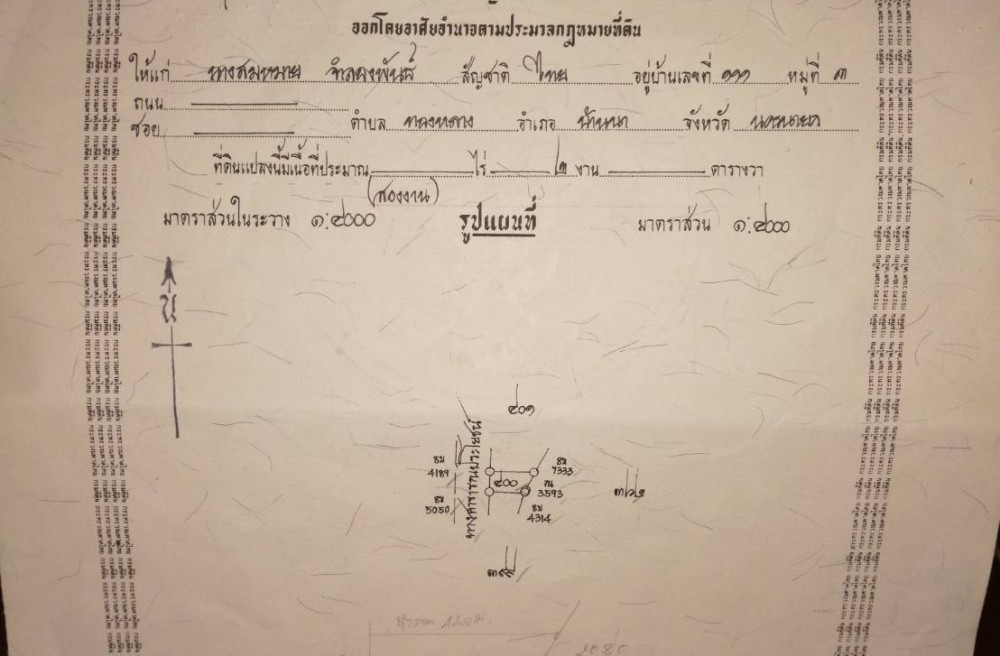 ออกโดยอาศัยอำนาจตามประมวลกฎหมายที่ดิน
ให้แก่ นางสมหมาย จำลองพันธ์ สัญชาติ ไทย อยู่บ้านเลขที่ ๑๑๑ หมู่ที่ ๓
ถนน
ซอย ตำบล ทองหลาง อำเภอ บ้านนา จังหวัด นครนายก
ที่ดินแปลงนี้มีเนื้อที่ประมาณ ไร่ ๒ งาน ตารางวา
(สองงาน)
มาตราส่วนในระวาง ๑:๔๐๐๐ รูปแผนที่ มาตราส่วน ๑:๔๐๐๐
น
๔๐๑
ทางสาธารณประโยชน์
4189
7333
๔๐๐
3593
๓๖๒
5050
4314
๓๙๙